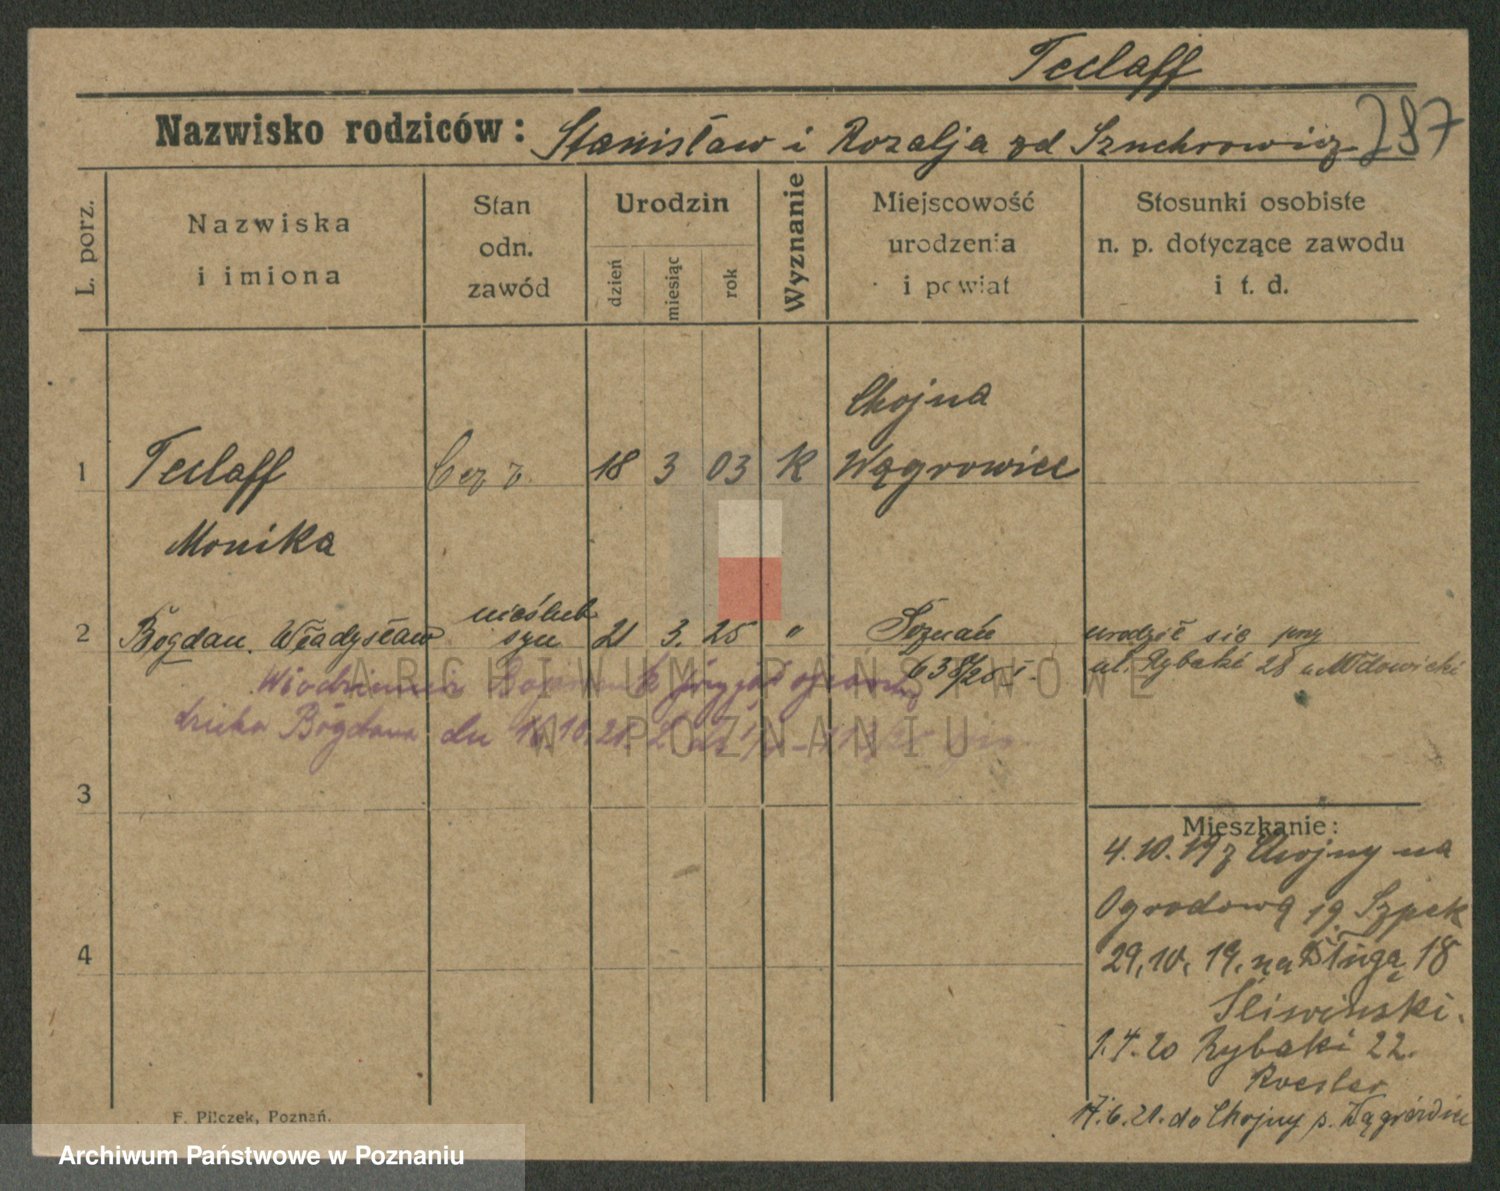 Teclaff
Nazwisko rodziców: Stanisław i Rozalja zd Szuchrowicz 787
L. porz.
Nazwiska
i imiona
Stan
odn.
zawód
Urodzin
dzień
miesiąc
rok
Wyznanie
Miejscowość
urodzenia
i powiat
Stosunki osobiste
n. p. dotyczące zawodu
i t. d.
Chojna
1 Teclaff bez z. 18 3 03 K Wągrowiec
Monika
nieślub
2 Bogdan Władysław syn 21 3. 25 " Poznań urodził się przy
638/25 I. ul. Rybaki 28 u Mdowicki
dziecka Bogdana dn
ARCHIWUM PAŃSTWOWE
W POZNANIU
3
Mieszkanie:
4.10.19 z Chojny na
Ogrodową 19 Szpek
4
29.10.19. na Długą 18
Śliwiński.
1.4.20 Rybaki 22.
Roesler
17.6.21. do Chojny p. Wągrówiec
F. Pilczek, Poznań.
Archiwum Państwowe w Poznaniu